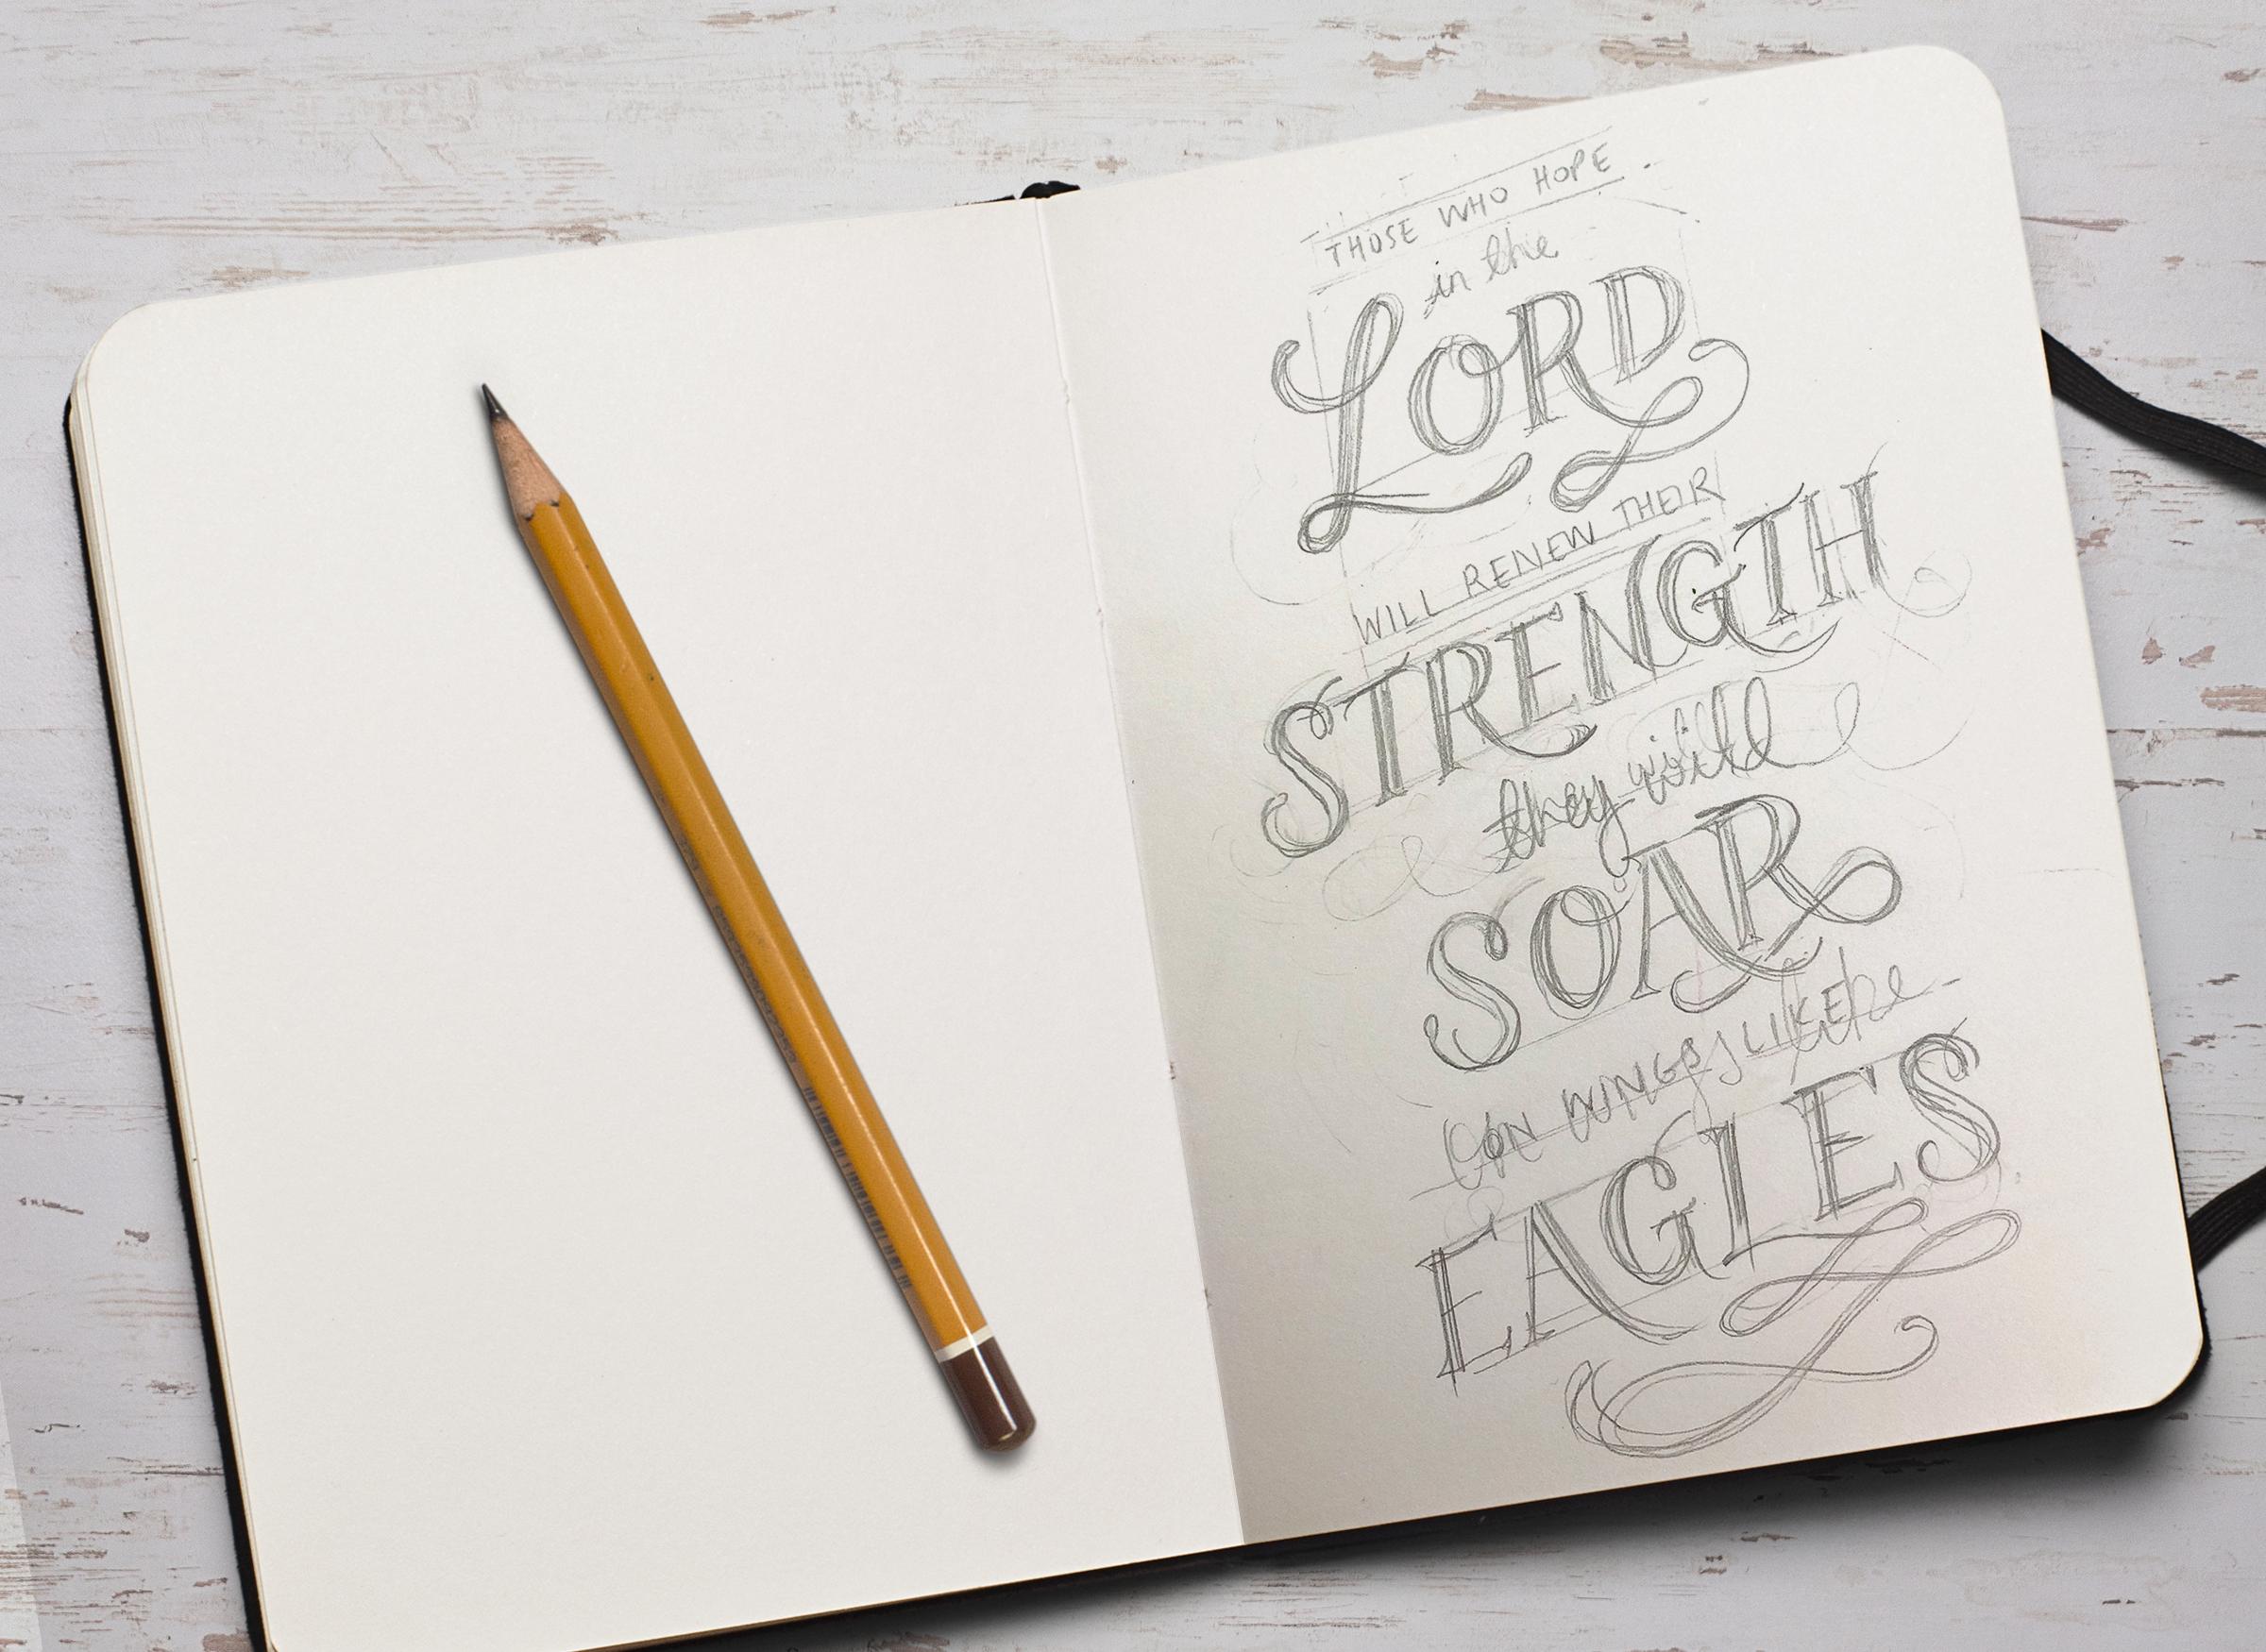 THOSE WHO HOPE
in the
LORD
WILL RENEW THEIR
STRENGTH
they will
SOAR
ON WINGS LIKE
EAGLES